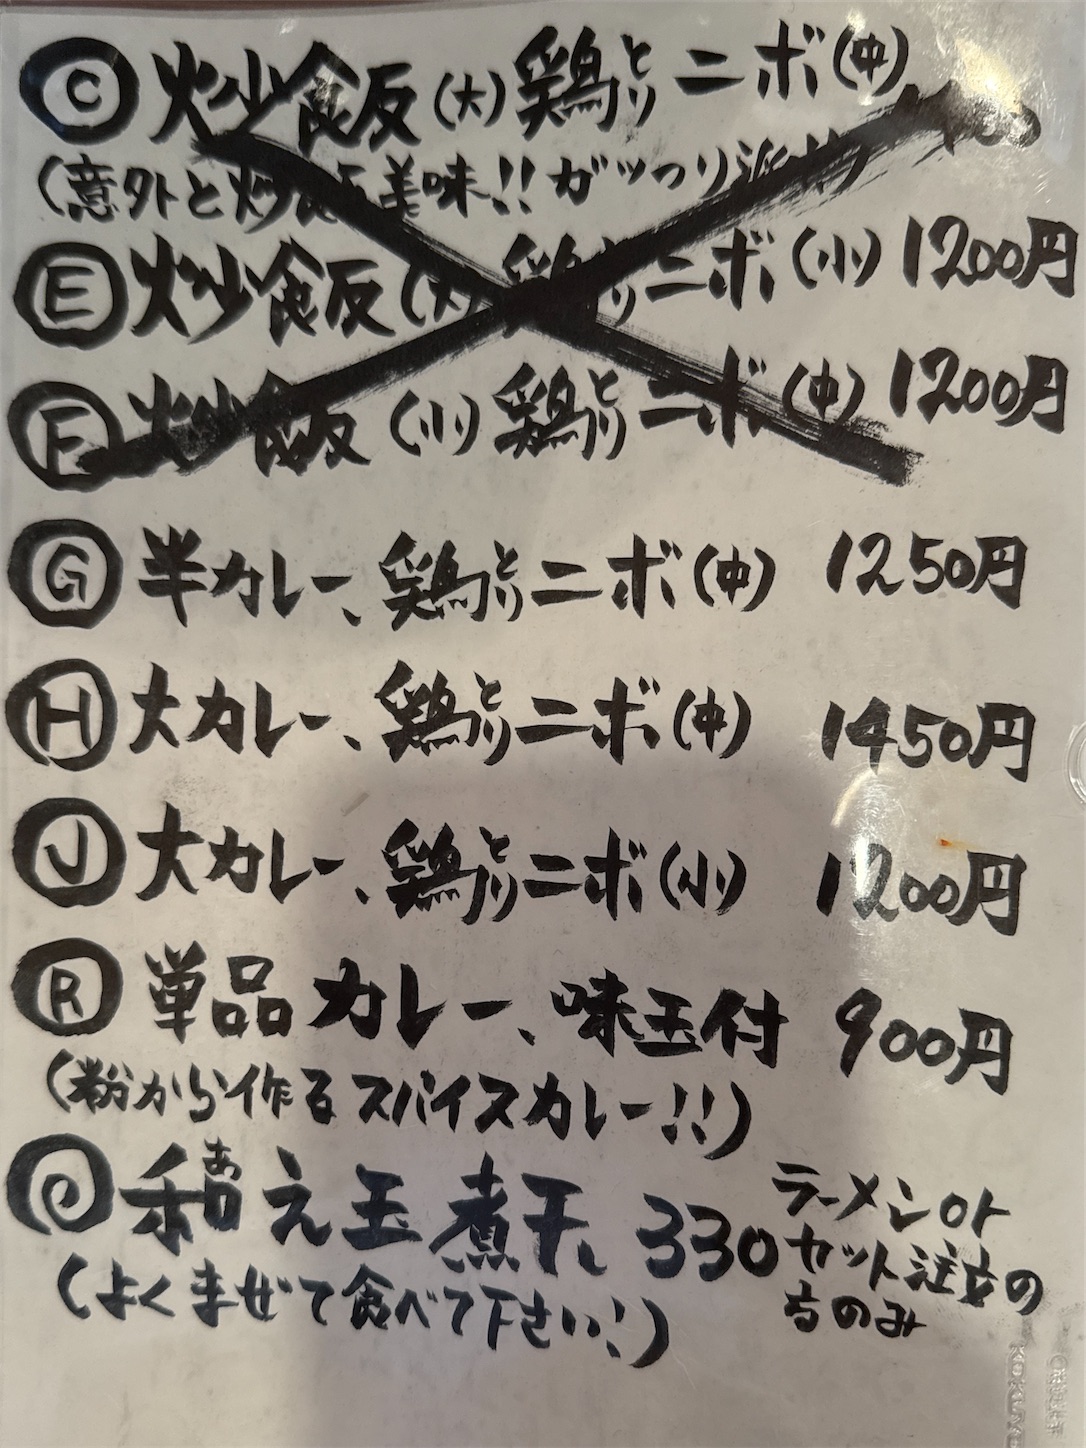 C 炒飯(大)鶏とりニボ(中)
(意外と炒飯美味!!ガッつり派
E 炒飯(大)鶏とりニボ(小) 1200円
F 炒飯(小)鶏とりニボ(中) 1200円
G 半カレー、鶏とりニボ(中) 1250円
H 大カレー、鶏とりニボ(中) 1450円
J 大カレー、鶏とりニボ(小) 1200円
R 単品カレー、味玉付 900円
(粉から作るスパイスカレー!!)
和あえ玉煮干し 330
ラーメンor
セット注文の
方のみ
(よくまぜて食べて下さい!)
KOKUYO